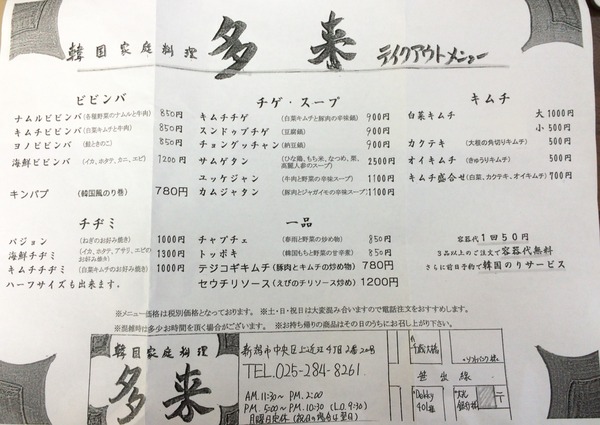 韓国家庭料理 多来 テイクアウトメニュー
ビビンバ
ナムルビビンバ (各種野菜のナムルと牛肉) 850円
キムチビビンバ (白菜キムチと牛肉) 850円
ヨノビビンバ (鮭ときのこ) 850円
海鮮ビビンバ (イカ、ホタテ、カニ、エビ) 1200円
キンパブ (韓国風のり巻) 780円
チヂミ
パジョン (ねぎのお好み焼き) 1000円
海鮮チヂミ (イカ、ホタテ、アサリ、エビのお好み焼き) 1300円
キムチチヂミ (白菜キムチのお好み焼き) 1000円
ハーフサイズも出来ます。
チゲ・スープ
キムチチゲ (白菜キムチと豚肉の辛味鍋) 900円
スンドゥブチゲ (豆腐鍋) 900円
チョングッチャン (納豆鍋) 900円
サムゲタン (ひな鶏、もち米、なつめ、栗、高麗人参のスープ) 2500円
ユッケジャン (牛肉と野菜の辛味スープ) 1100円
カムジャタン (豚肉とジャガイモの辛味スープ) 1100円
一品
チャプチェ (春雨と野菜の炒め物) 850円
トッポキ (韓国もちと野菜の甘辛煮) 850円
テジコギキムチ (豚肉とキムチの炒め物) 780円
セウチリソース (えびのチリソース炒め) 1200円
キムチ
白菜キムチ 大 1000円
小 500円
カクテキ (大根の角切りキムチ) 500円
オイキムチ (きゅうりキムチ) 500円
キムチ盛合せ (白菜、カクテキ、オイキムチ) 700円
容器代 1回50円
3品以上のご注文で容器代無料
さらに前日予約で韓国のりサービス
※メニュー価格は税別価格となっております。 ※土・日・祝日は大変混み合いますので電話注文をおすすめします。
※混雑時は多少お時間を頂く場合がございます。 ※お持ち帰りの商品はその日のうちにお召し上がり下さい。
韓国家庭料理
多来
新潟市中央区上近江4丁目2番20号
TEL.025-284-8261
AM.11:30~PM.2:00
PM.5:00~PM.10:30 (L.O.9:30)
月曜日定休 (祝日の場合は翌日)
笹出線
Dekky
401様
大光
銀行様
〒